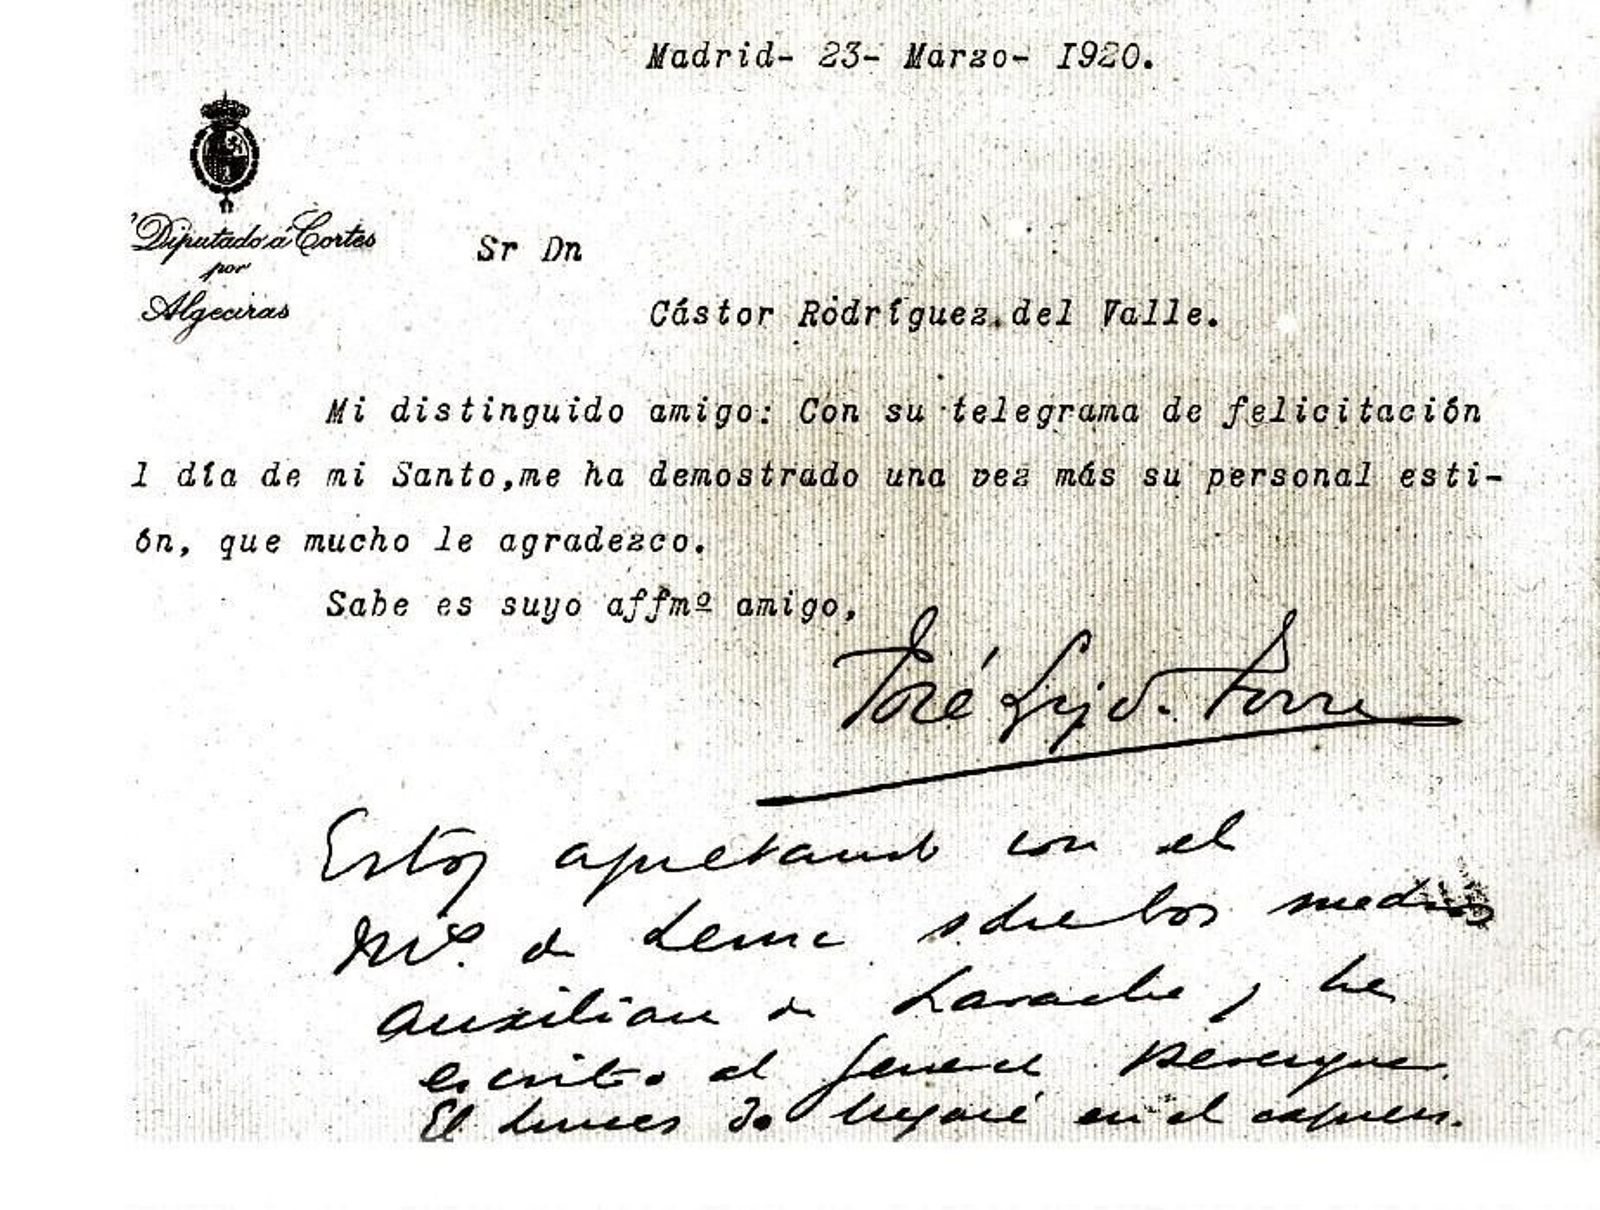 Madrid- 23- Marzo- 1920.
Diputado a Cortes
por
Algeciras
Sr Dn
Cástor Rodríguez del Valle.
Mi distinguido amigo: Con su telegrama de felicitación
l día de mi Santo,me ha demostrado una vez más su personal esti-
ón, que mucho le agradezco.
Sabe es suyo affmº amigo,
José Torre
Estoy apretando con el
de Lema sobre los medios
auxiliares de Larache, he
escrito al General Berenguer.
El Lunes llegaré en el express.